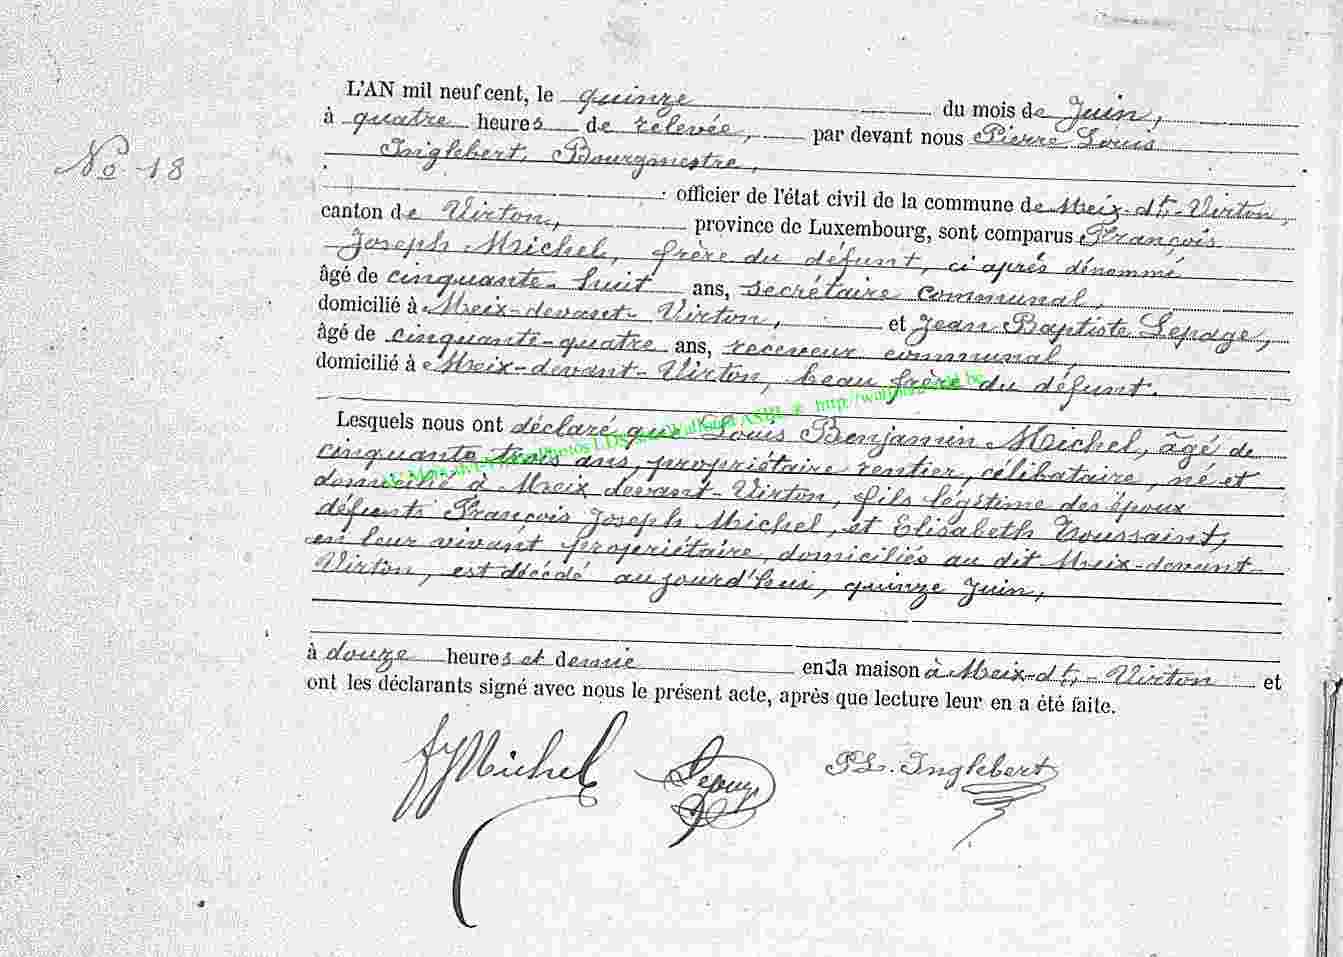 No 18
L'AN mil neuf cent, le quinze du mois de Juin,
à quatre heures de relevée, par devant nous Pierre Louis
Inglebert, Bourgmestre,
officier de l'état civil de la commune de Meix-dt-Virton,
canton de Virton, province de Luxembourg, sont comparus François
Joseph Michel, frère du défunt, ci après dénommé
âgé de cinquante-huit ans, secrétaire communal,
domicilié à Meix-devant-Virton, et Jean Baptiste Lepage,
âgé de cinquante-quatre ans, receveur communal,
domicilié à Meix-devant-Virton, beau frère du défunt.
Lesquels nous ont déclaré que Louis Benjamin Michel, âgé de
cinquante trois ans, propriétaire rentier, célibataire, né et
domicilié à Meix devant-Virton, fils légitime des époux
défunts François Joseph Michel, et Elisabeth Toussaint,
en leur vivant propriétaire domiciliés au dit Meix-devant-
Virton, est décédé aujourd'hui, quinze Juin,
à douze heures et demie en la maison à Meix-dt-Virton et
ont les déclarants signé avec nous le présent acte, après que lecture leur en a été faite.
fj Michel Lepage PL. Inglebert